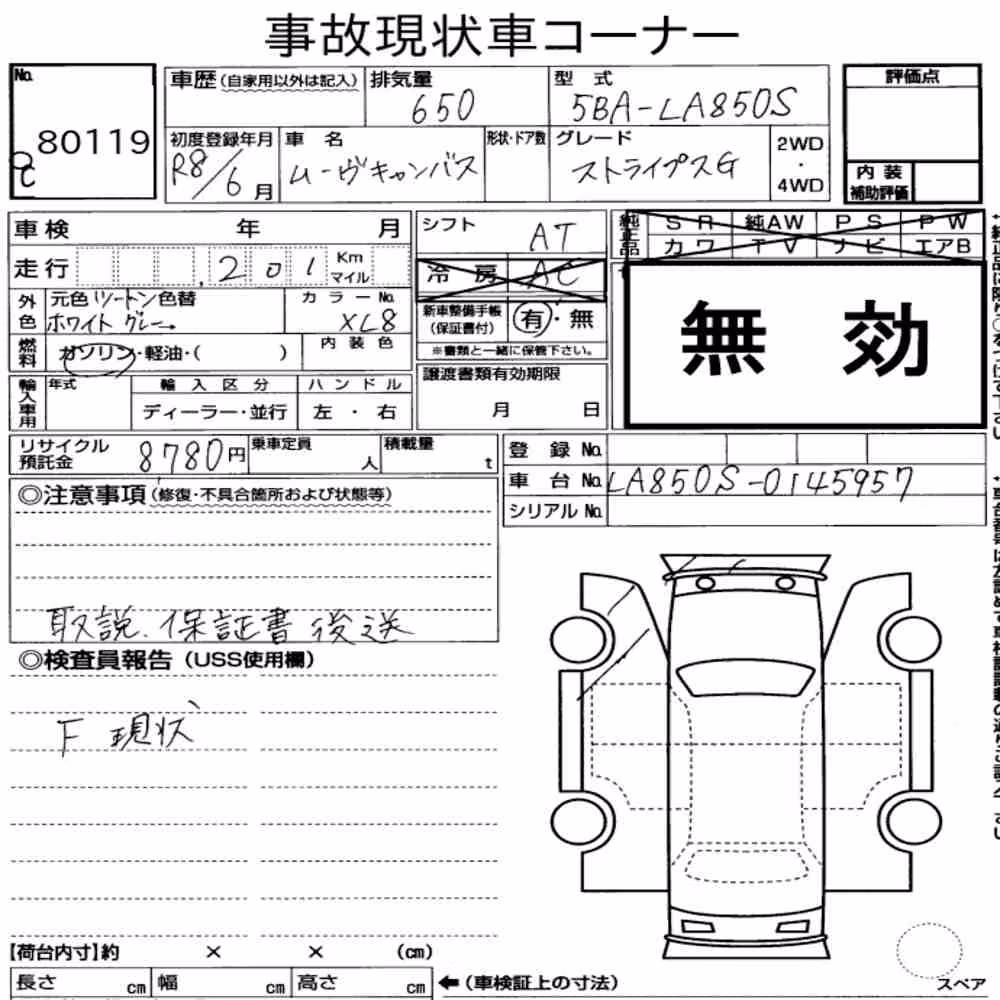 事故現状車コーナー
No. 80119
車歴(自家用以外は記入)
排気量 650
型式 5BA-LA850S
評価点
初度登録年月 R8/6月
車名 ムーヴキャンバス
形状・ドア数
グレード ストライプスG
2WD・4WD
内装補助評価
車検 年 月
シフト AT
純正品 SR 純AW PS PW
カワ TV ナビ エアB
走行 2 0 1 Km マイル
冷房 AC
無効
外色 元色(ツートン色替
ホワイト グレー
カラーNo. XL8
新車整備手帳(保証書付) 有・無
※書類と一緒に保管下さい。
燃料 ガソリン・軽油・( )
内装色
譲渡書類有効期限
月 日
輸入車用 年式 輸入区分 ハンドル
ディーラー・並行 左・右
リサイクル預託金 8780円
乗車定員 人
積載量 t
登録No.
車台No. LA850S-0145957
シリアルNo.
◎注意事項(修復・不具合箇所および状態等)
取説、保証書後送
◎検査員報告(USS使用欄)
F 現状
【荷台内寸】約 × × (cm)
長さ cm 幅 cm 高さ cm
←(車検証上の寸法)
スペア